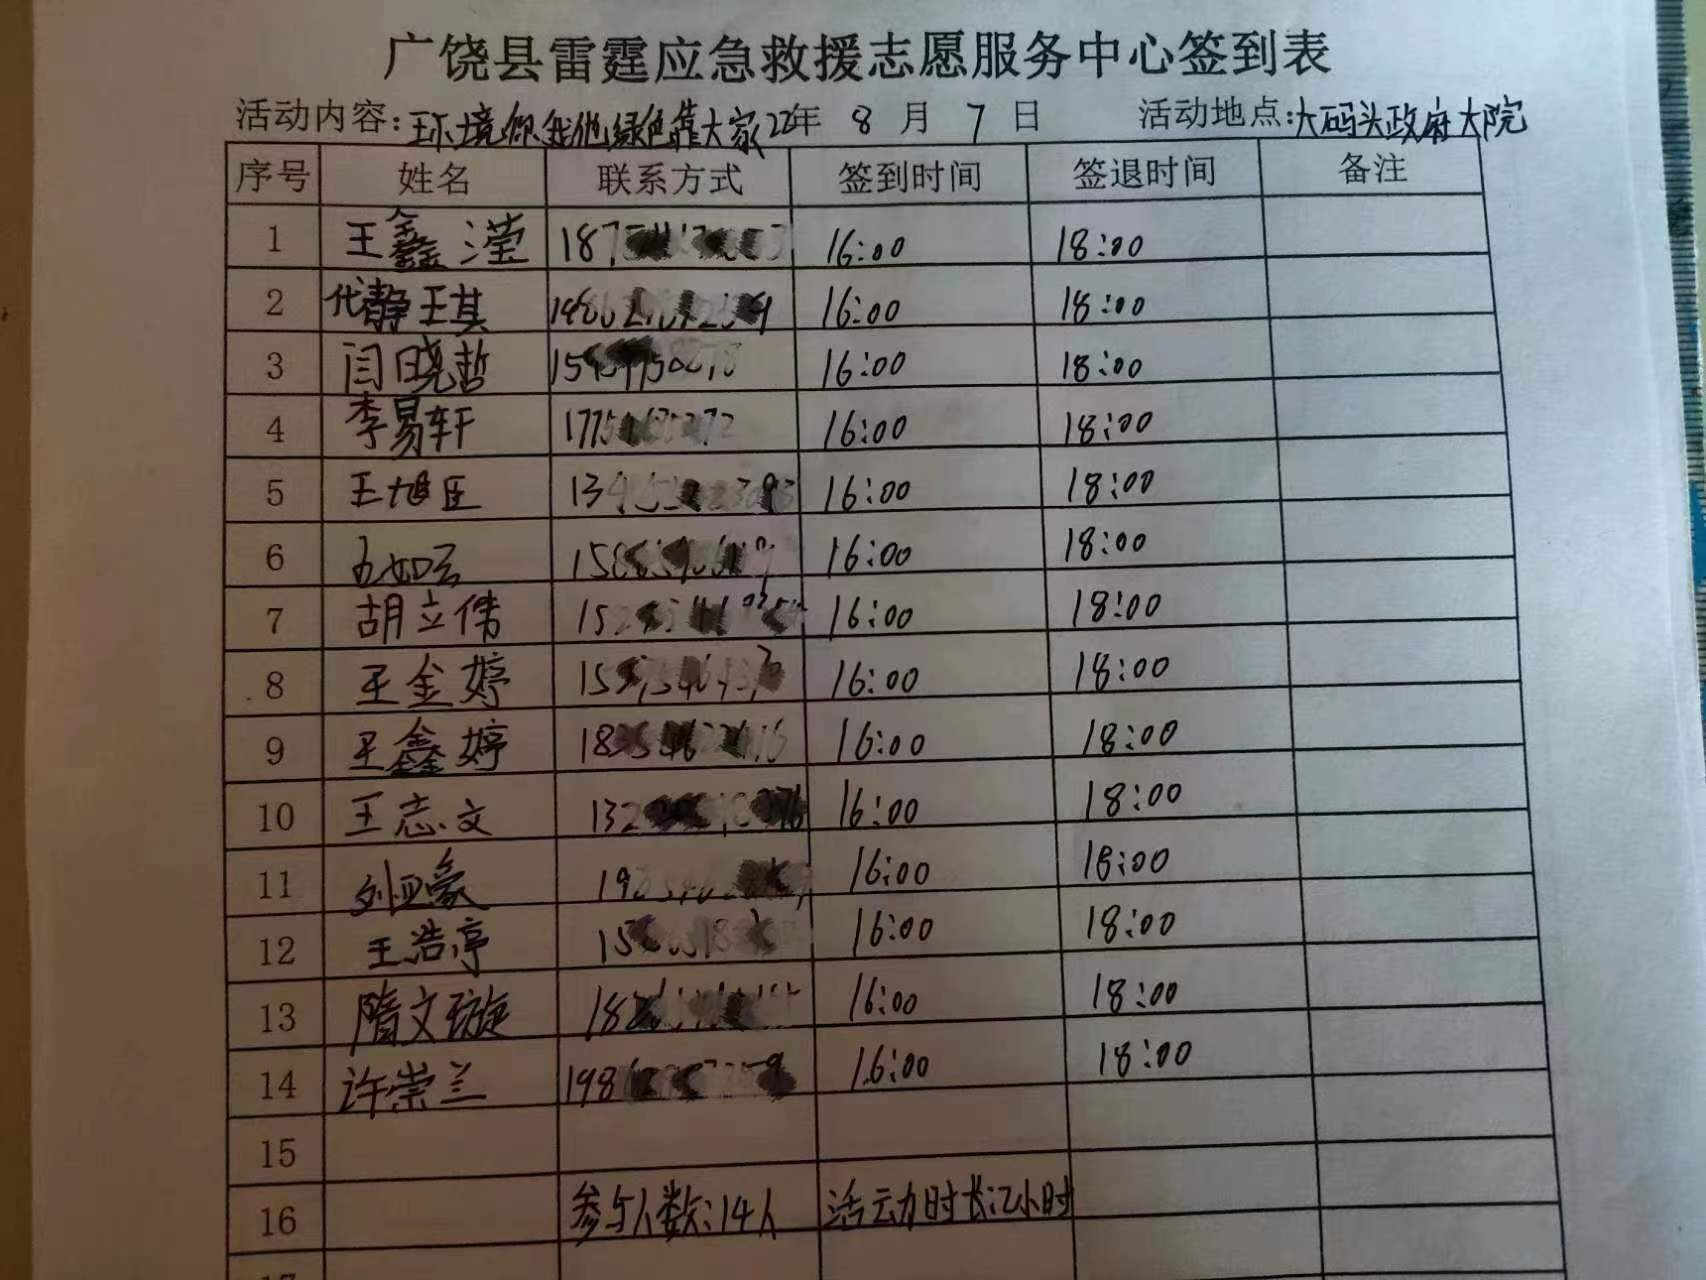 广饶县雷霆应急救援志愿服务中心签到表
活动内容:环境你我他绿色靠大家 22年 8 月 7 日 活动地点:大码头政府大院
序号 姓名 联系方式 签到时间 签退时间 备注
1 王鑫滢 187 16:00 18:00
2 代静王其 16:00 18:00
3 闫晓哲 15 16:00 18:00
4 李易轩 1775 16:00 18:00
5 王旭臣 13 16:00 18:00
6 16:00 18:00
7 胡立伟 15 16:00 18:00
8 王金婷 15 16:00 18:00
9 王鑫婷 18 16:00 18:00
10 王志文 132 16:00 18:00
11 19 16:00 18:00
12 王浩亭 15 16:00 18:00
13 隋文璇 18 16:00 18:00
14 许崇兰 198 16:00 18:00
15
16 参与人数:14人 活动时长:2小时